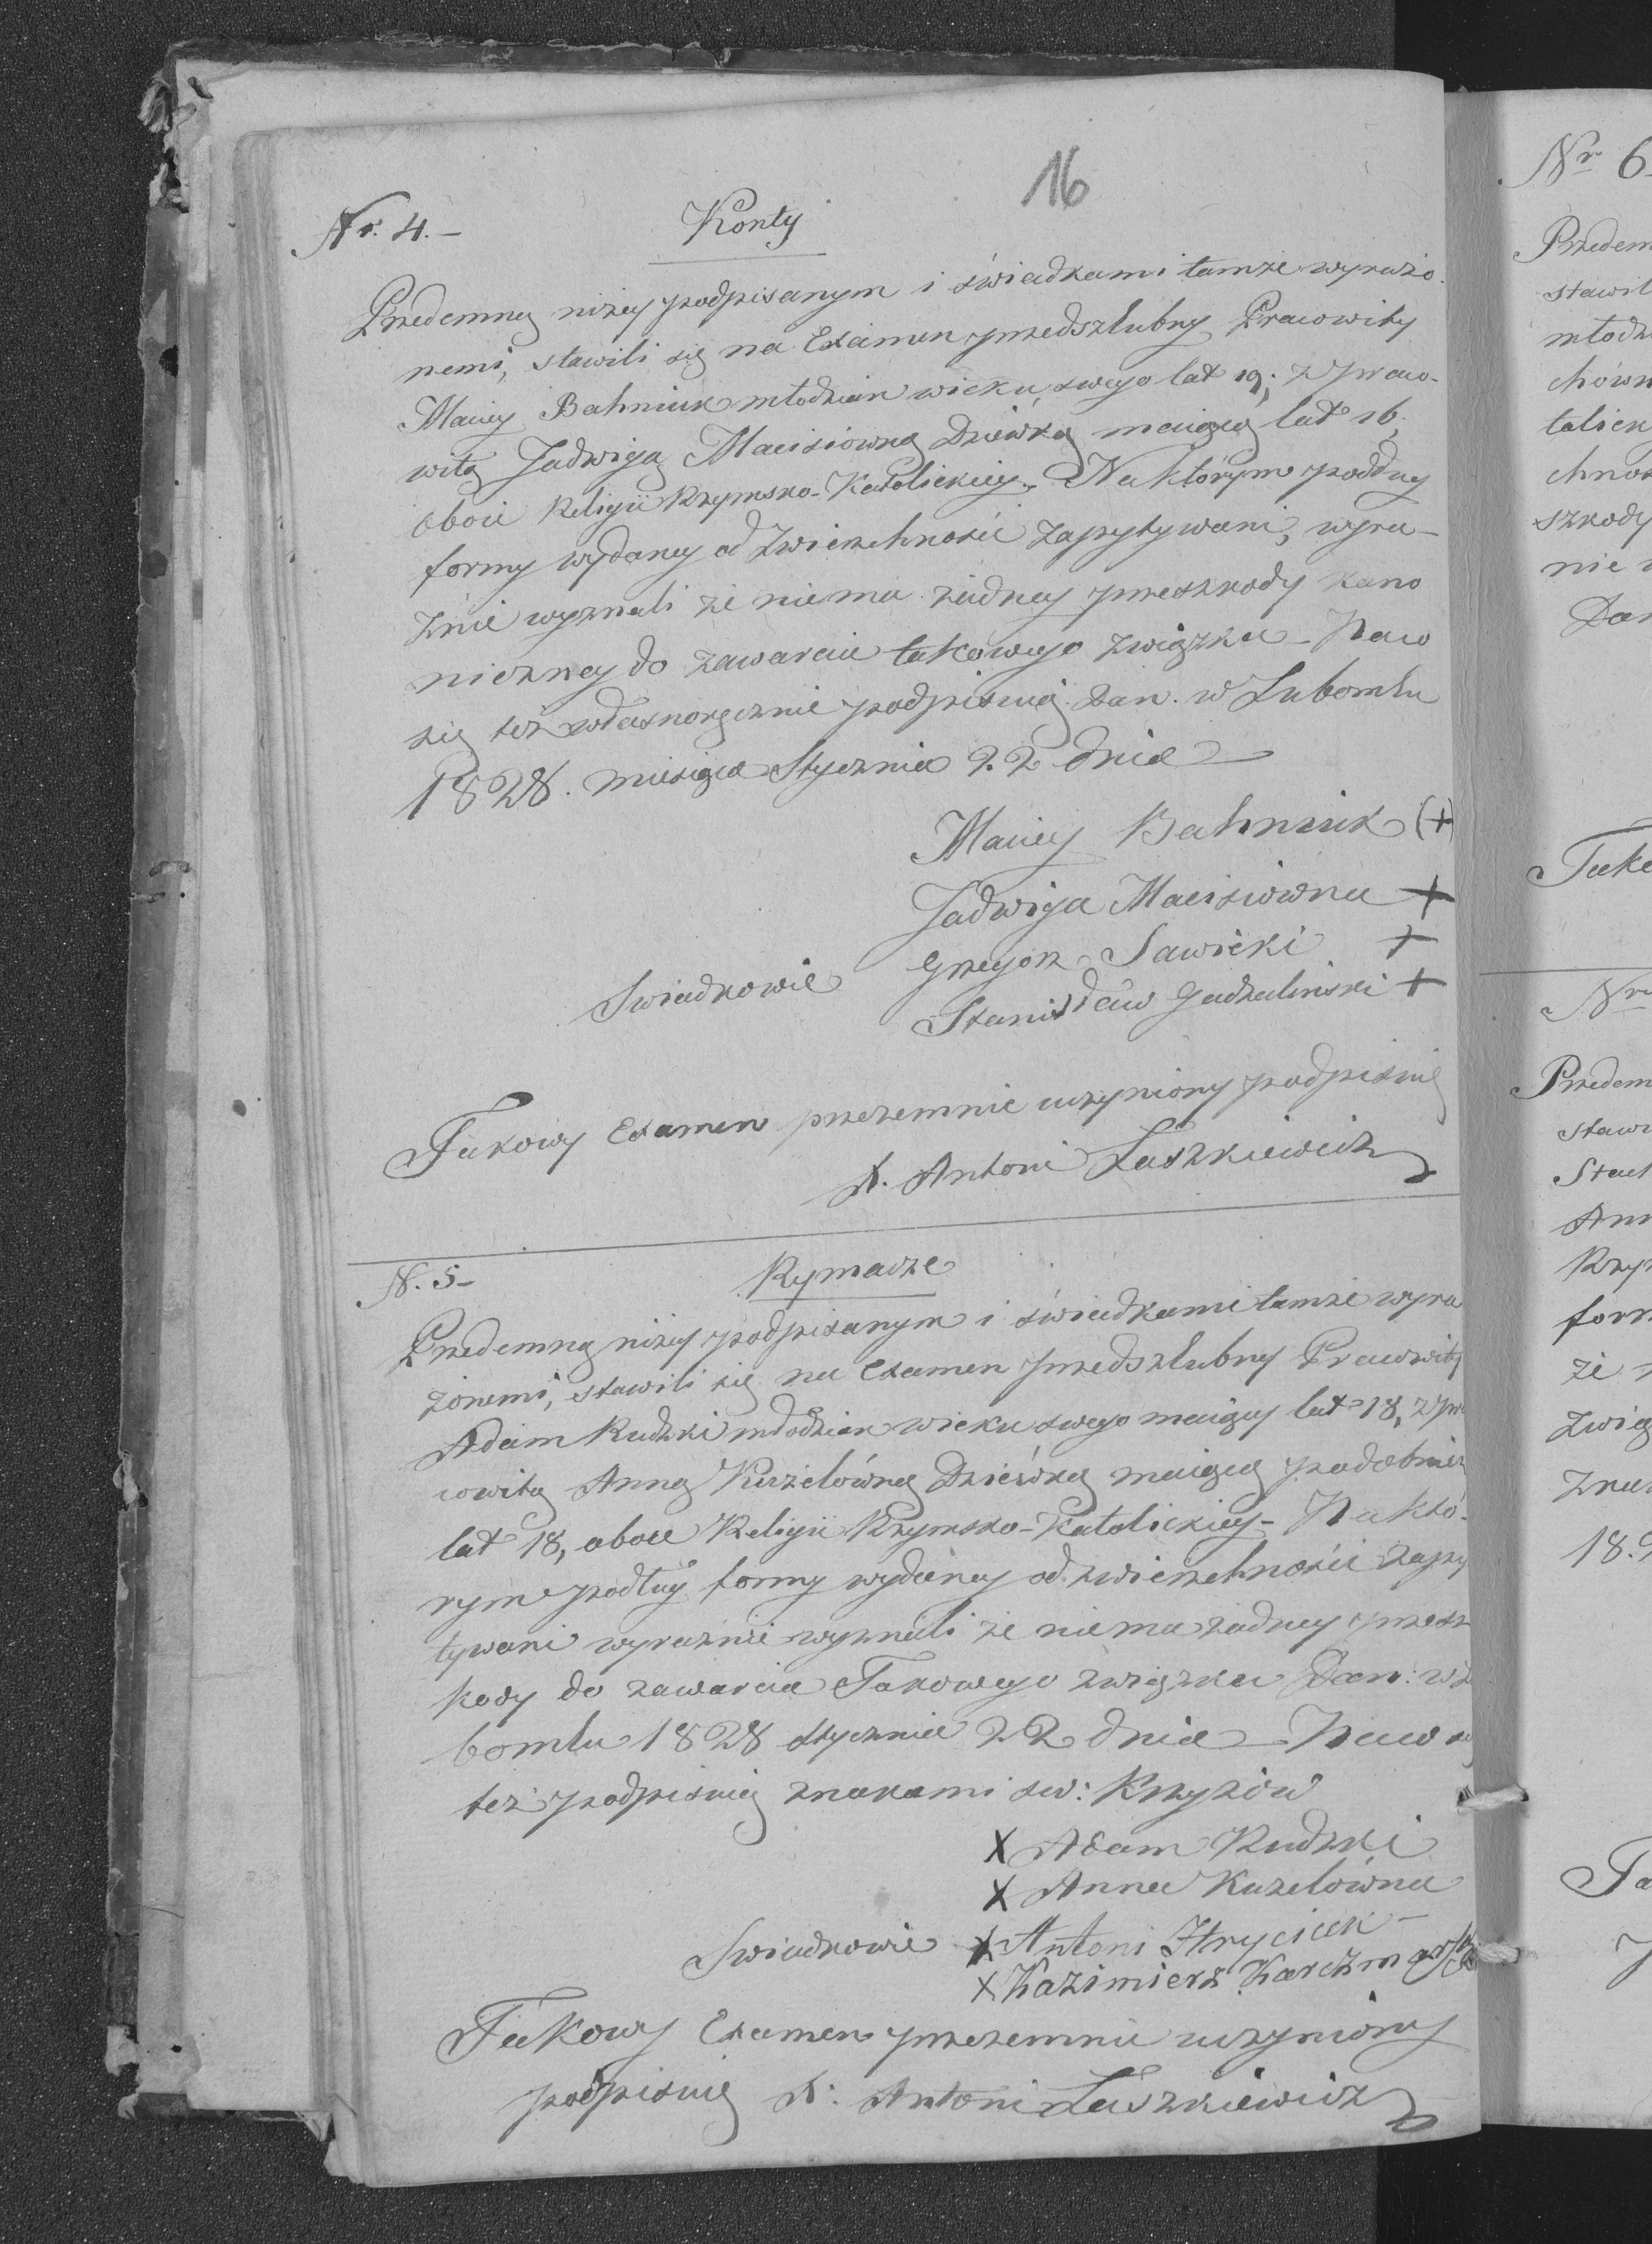 16
Nr. 4.- Konty
Przedemną niżey podpisanym i świadkami tamże wyrażo-
nemi, stawili się na Examen przedszlubny Pracowity
Maciey Bahniuk młodzian wieku swego lat 19; z praco-
witą Jadwigą Macisiowną Dziewką maiącą lat 16,
oboie Religii Rzymsko-Katolickiey. Na którym podług
formy wydaney od Zwierzchności zapytywani, wyra-
źnie wyznali że niema żadney przeszkody kano
niczney do zawarcia takowego związku - Na co
się też własnoręcznie podpisuią Dan. w Lubomlu
1828. miesiąca Stycznia 22 dnia
Maciey Bahniuk (+)
Jadwiga Macisiowna +
Swiadkowie Grzegorz Sawicki +
Stanisław Gadzaliński +
Takowy Examen przezemnie uczyniony podpisuię
X. Antoni Laszkiewicz
N. 5- Rymacze
Przedemną niżey podpisanym i świadkami tamże wyra
żonemi, stawili się na Examen przedszlubny Pracowity
Adam Rudzki młodzian wieku swego maiący lat 18, z pra
cowitą Anną Kuzelówną Dziewką maiącą podobnież
lat 18, oboie Religii Rzymsko-Katolickiey - Na któ-
rym podług formy wydaney od zwierzchności zapy
tywani wyraźnie wyznali że niema żadney przesz
kody do zawarcia Takowego związku Dan: w L
bomlu 1828 Stycznia 22 dnia - Na co się
też podpisuią znakami św: Krzyżów
X Adam Rudzki
X Anna Kuzelówna
Swiadkowie X Antoni Hryciuk -
X Kazimierz Karczmarski
Takowy Examen przezemnie uczyniony
podpisuię X. Antoni Laszkiewicz
Nr 6
Przedem
stawil
młodz
chówn
tolick
chnoś
szkody
nie
Dan
Tako
Nr
Przedem
stawi
Stach
Ann
Rzym
form
że
związ
zna
18
Ta